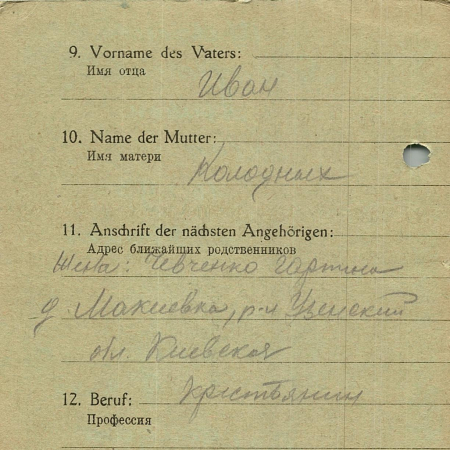 9. Vorname des Vaters:
Имя отца
Иван
10. Name der Mutter:
Имя матери
Колодных
11. Anschrift der nächsten Angehörigen:
Адрес ближайших родственников
Жена: Чевченко
д. Макиевка, р-н
обл. Киевская
12. Beruf:
Крестьянин
Профессия